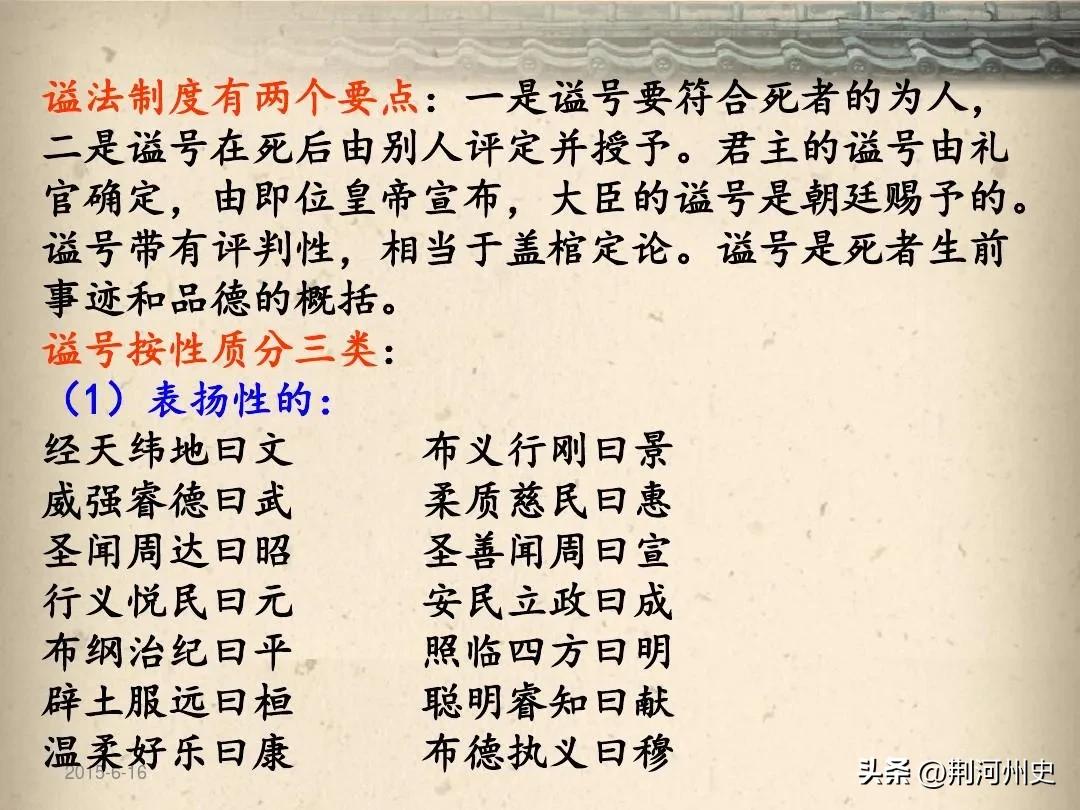 谥法制度有两个要点：一是谥号要符合死者的为人，
二是谥号在死后由别人评定并授予。君主的谥号由礼
官确定，由即位皇帝宣布，大臣的谥号是朝廷赐予的。
谥号带有评判性，相当于盖棺定论。谥号是死者生前
事迹和品德的概括。
谥号按性质分三类：
（1）表扬性的：
经天纬地曰文 布义行刚曰景
威强睿德曰武 柔质慈民曰惠
圣闻周达曰昭 圣善闻周曰宣
行义悦民曰元 安民立政曰成
布纲治纪曰平 照临四方曰明
辟土服远曰桓 聪明睿知曰献
温柔好乐曰康 布德执义曰穆
2015-6-16
头条 @荆河州史